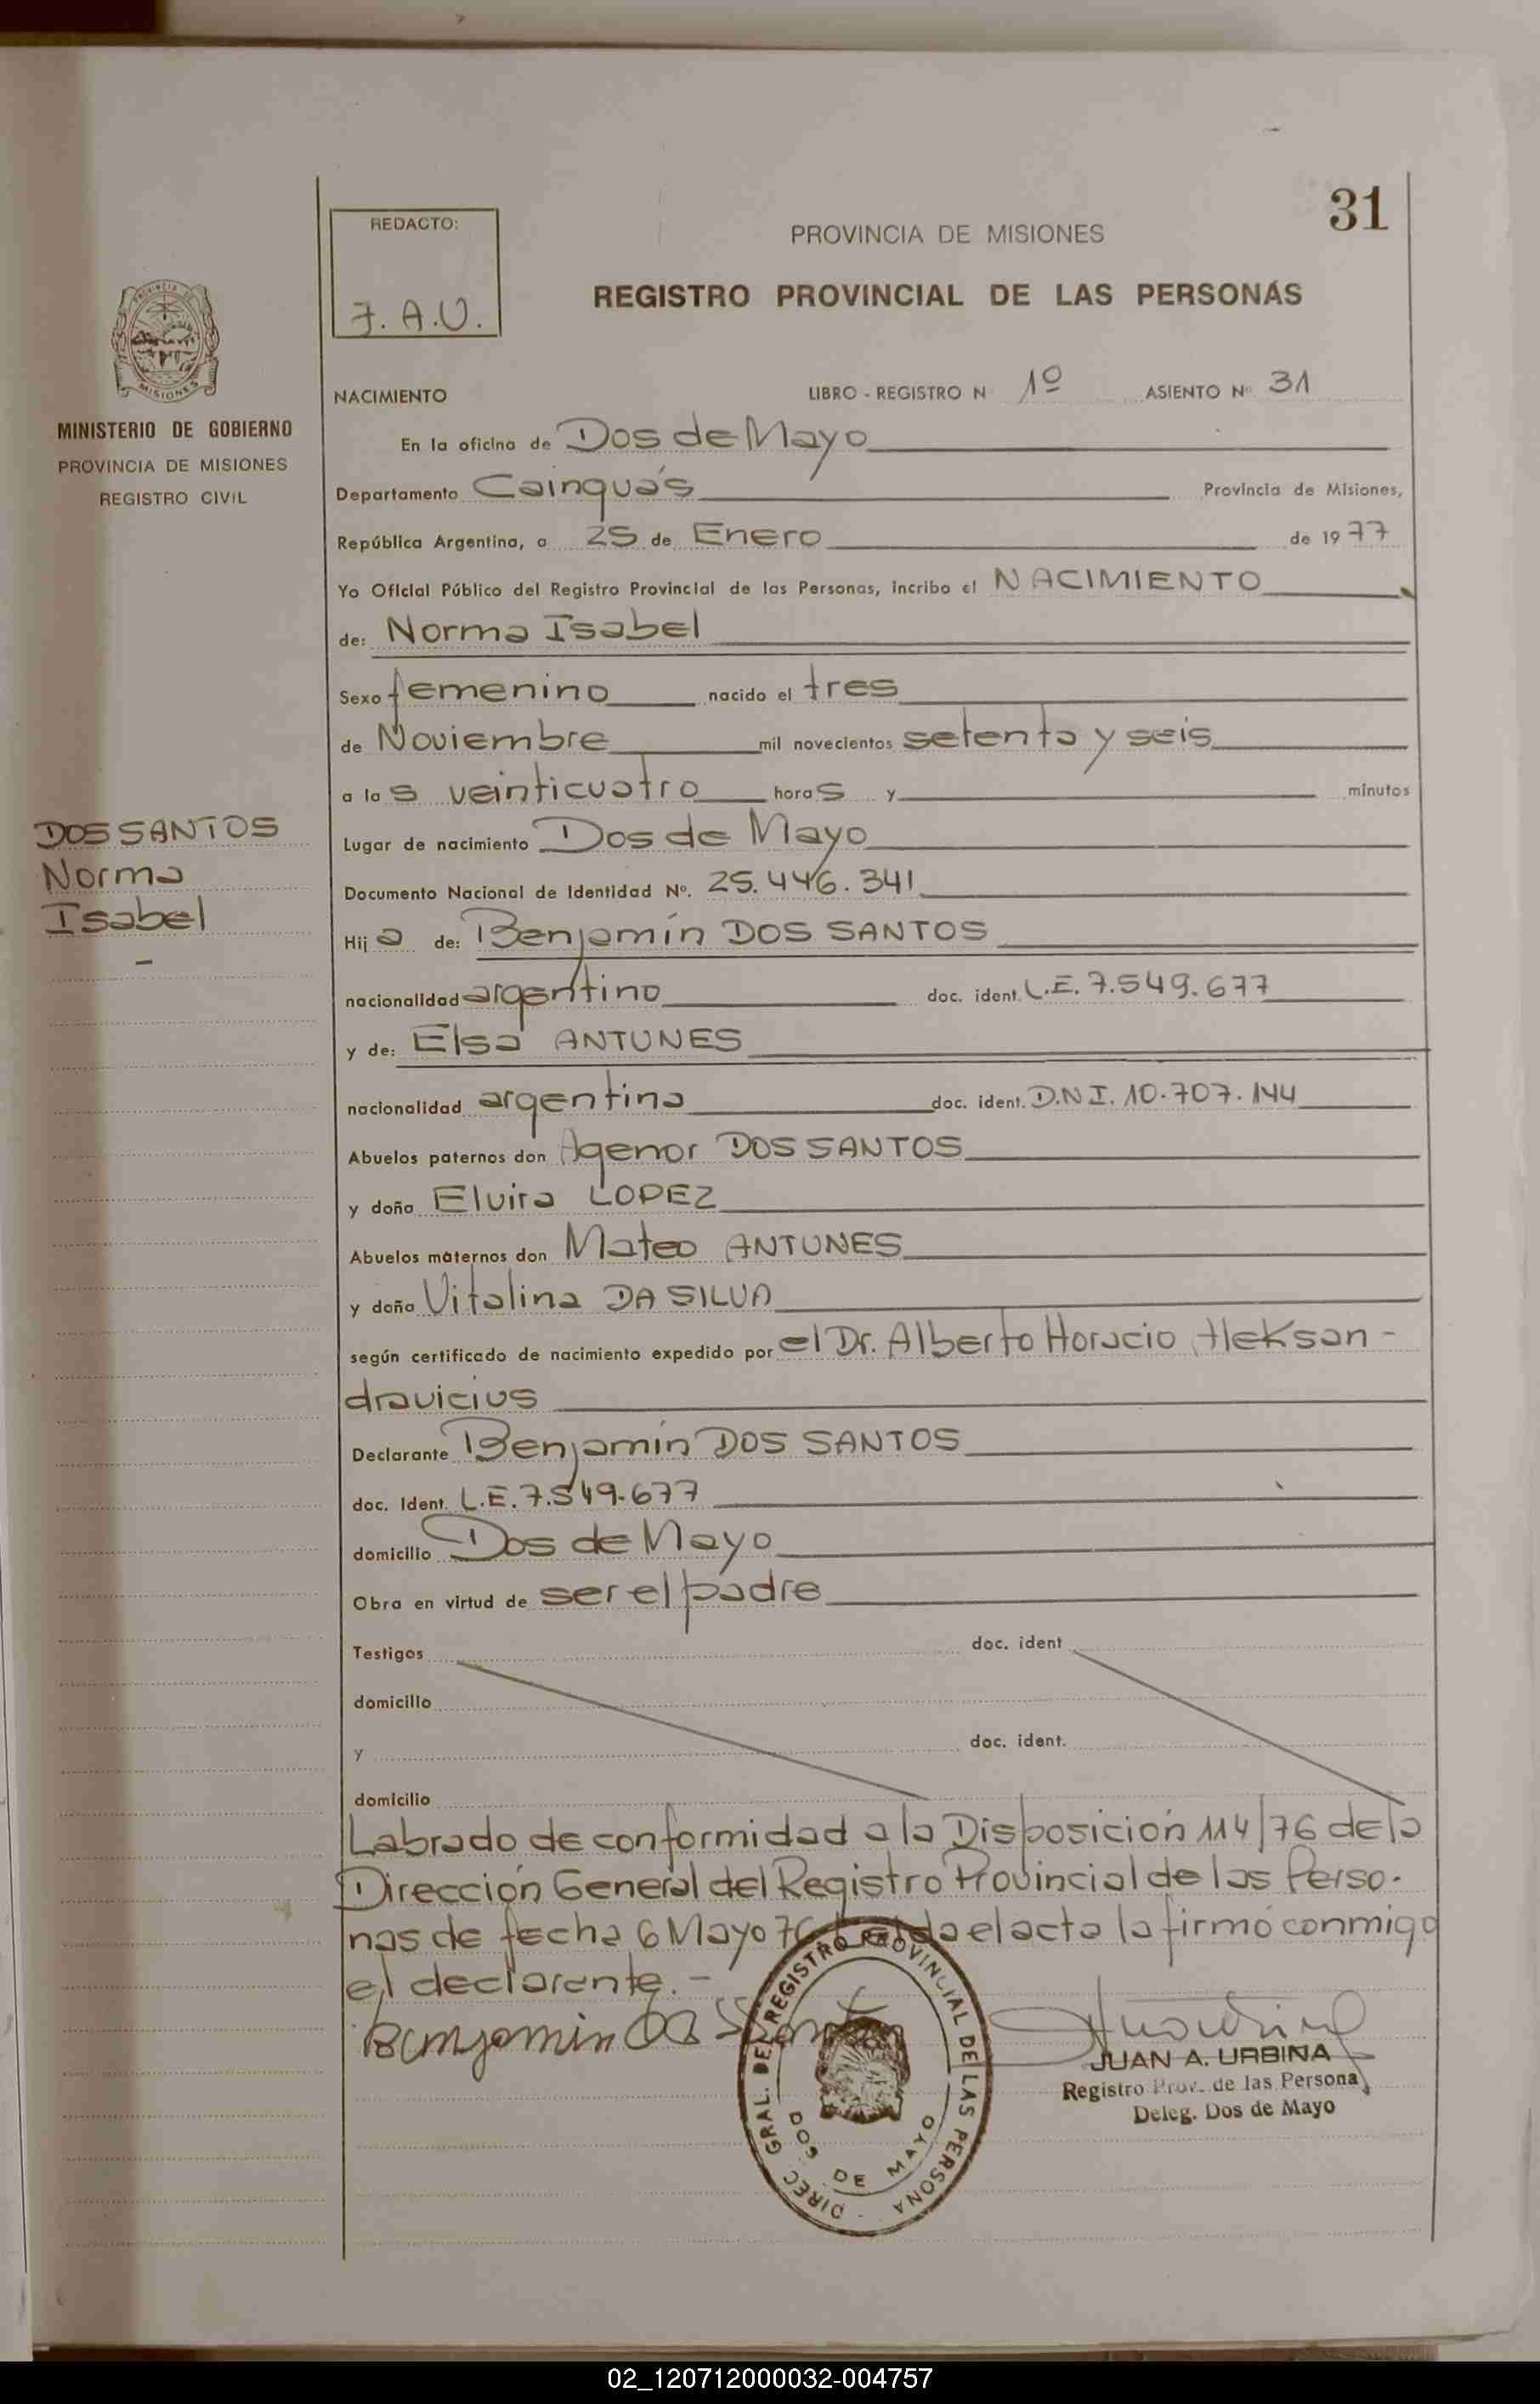 31
REDACTO:
J.A.U.
PROVINCIA DE MISIONES
REGISTRO PROVINCIAL DE LAS PERSONAS
PROVINCIA DE
MISIONES
MINISTERIO DE GOBIERNO
PROVINCIA DE MISIONES
REGISTRO CIVIL
NACIMIENTO LIBRO - REGISTRO N 1º ASIENTO Nº 31
En la oficina de Dos de Mayo
Departamento Cainguás Provincia de Misiones,
República Argentina, a 25 de Enero de 1977
Yo Oficial Público del Registro Provincial de las Personas, incribo el NACIMIENTO
de: Norma Isabel
Sexo femenino nacido el tres
de Noviembre mil novecientos setenta y seis
a las veinticuatro horas y minutos
Lugar de nacimiento Dos de Mayo
DOS SANTOS
Norma
Isabel
Documento Nacional de Identidad Nº. 25.446.341
Hija de: Benjamín DOS SANTOS
nacionalidad argentino doc. ident. L.E. 7.549.677
y de: Elsa ANTUNES
nacionalidad argentina doc. ident. D.N.I. 10.707.144
Abuelos paternos don Agenor DOS SANTOS
y doña Elvira LOPEZ
Abuelos maternos don Mateo ANTUNES
y doña Vitalina DA SILVA
según certificado de nacimiento expedido por el Dr. Alberto Horacio Aleksan-
dravicius
Declarante Benjamín DOS SANTOS
doc. Ident. L.E. 7.549.677
domicilio Dos de Mayo
Obra en virtud de ser el padre
Testigos doc. ident
domicilio
y doc. ident.
domicilio
Labrado de conformidad a la Disposición 114/76 de la
Dirección General del Registro Provincial de las Perso-
nas de fecha 6 Mayo 76 Leida el acta la firmó conmigo
el declarante.-
Benjamin Dos Santos
DIREC. GRAL. DEL REGISTRO PROVINCIAL DE LAS PERSONA
DOS DE MAYO
JUAN A. URBINA
Registro Prov. de las Persona
Deleg. Dos de Mayo
02_120712000032-004757